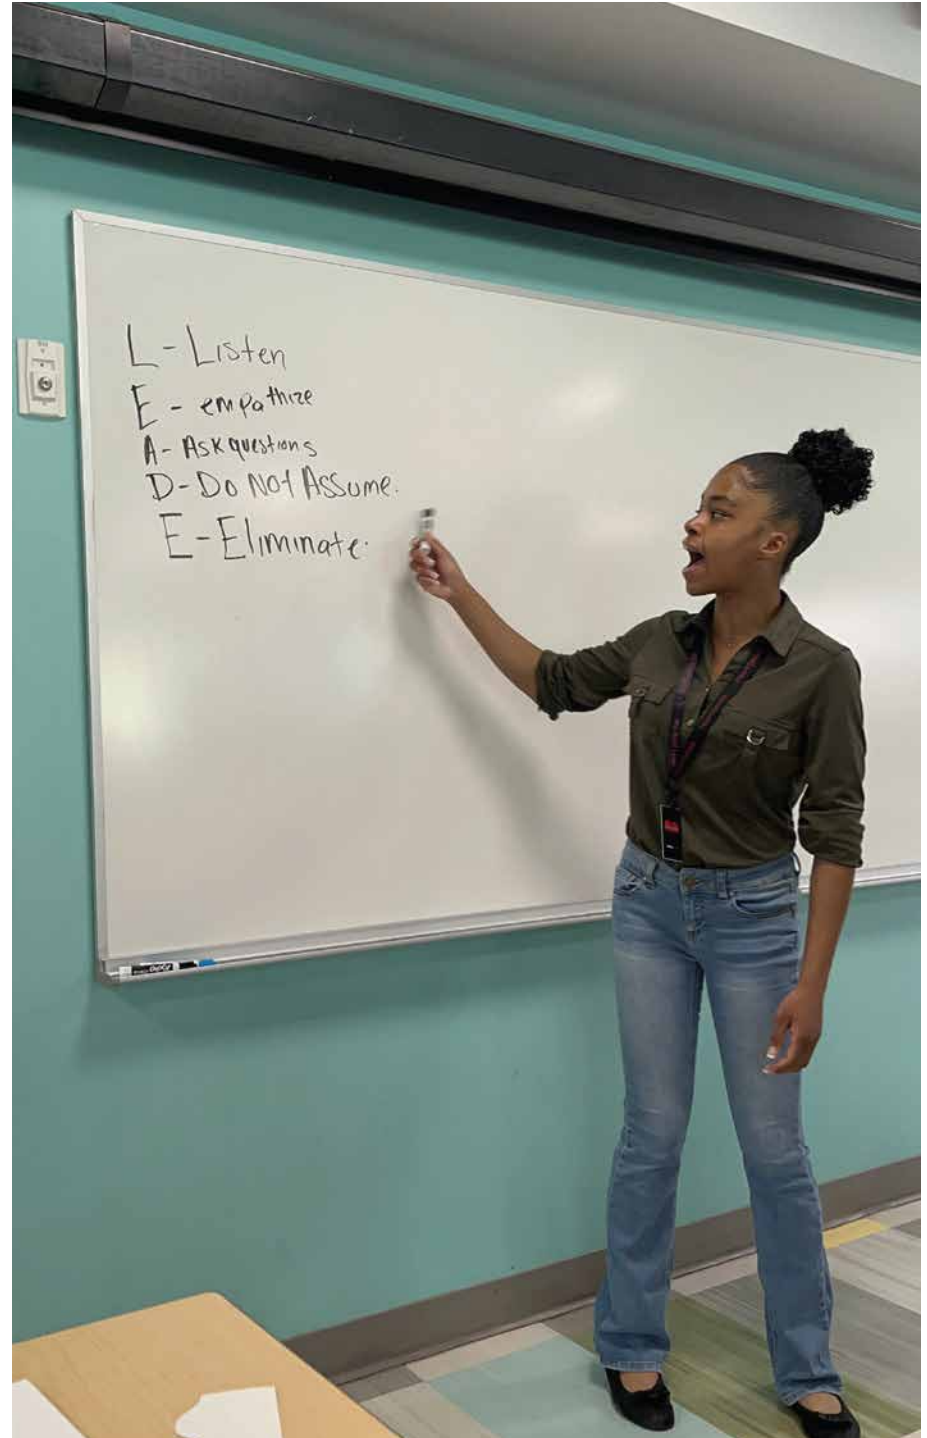 L - Listen
E - empathize
A - Ask questions
D - Do Not Assume.
E - Eliminate.